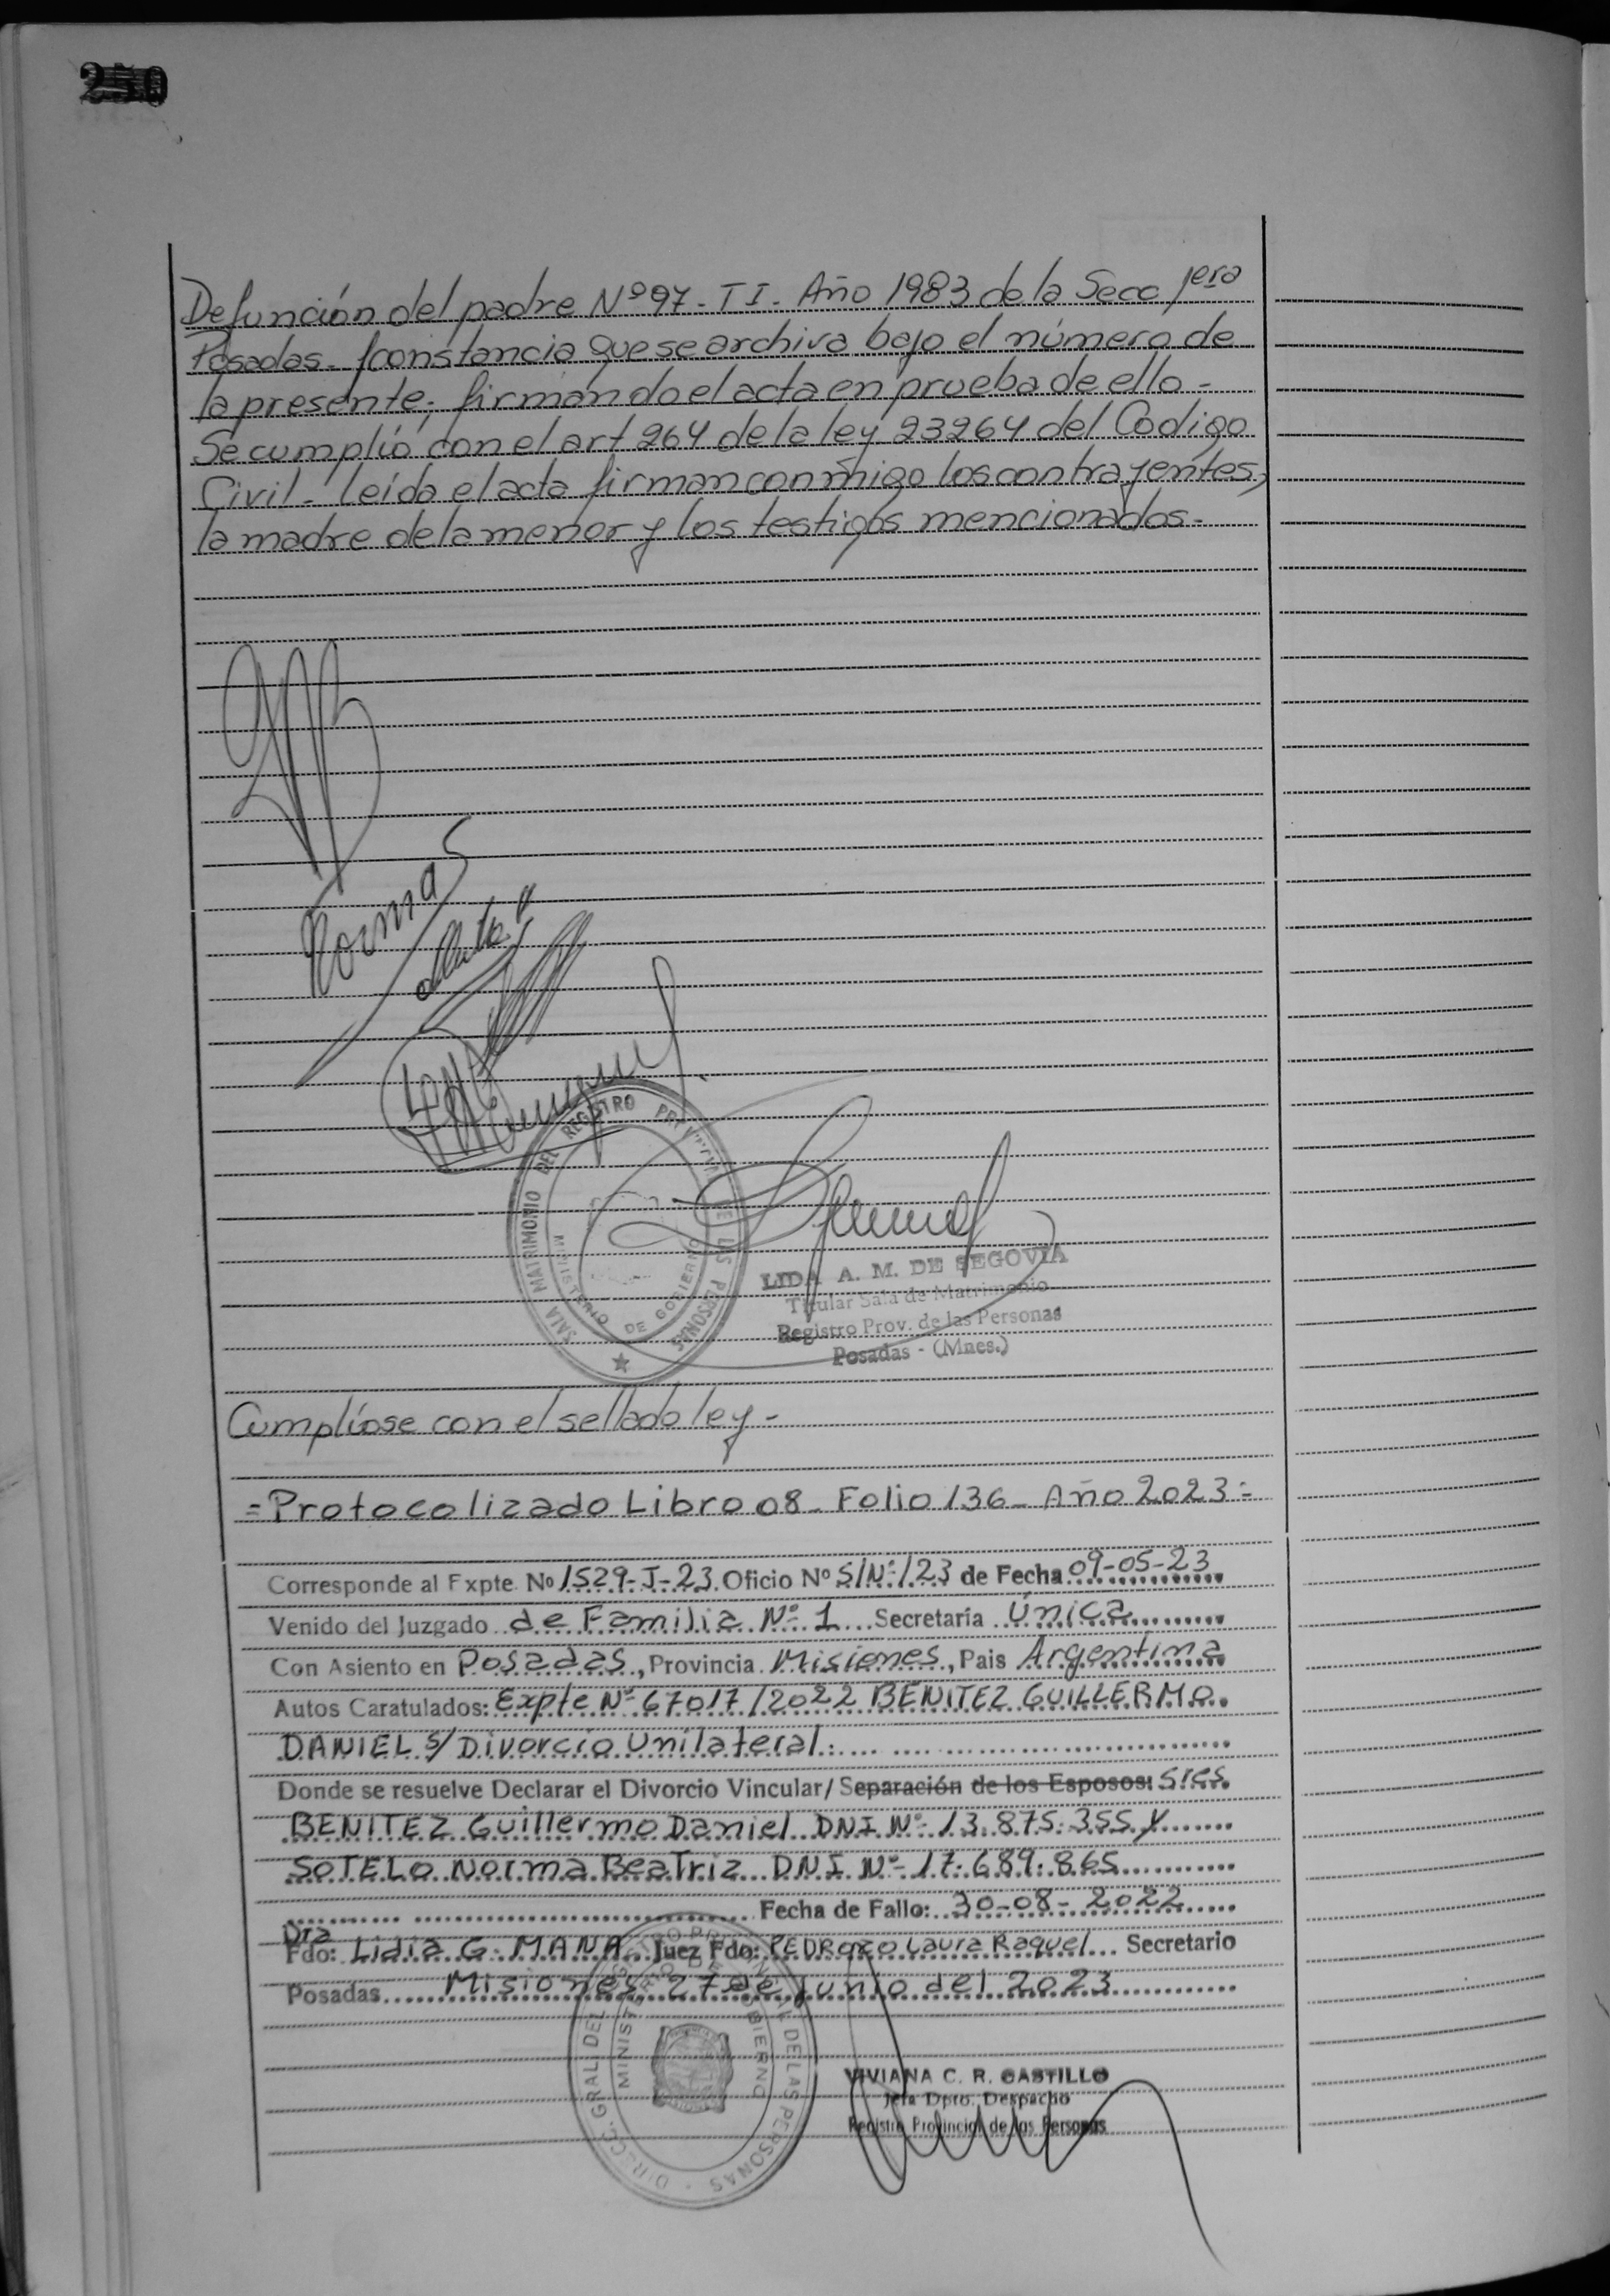 250
Defunción del padre Nº 97 - T I - Año 1983 de la Secc 1era
Posadas - constancia que se archiva bajo el número de
la presente; firmando el acta en prueba de ello -
Se cumplió con el art 264 de la ley 23264 del Codigo
Civil - leída el acta firman conmigo los contrayentes,
la madre de la menor y los testigos mencionados -
Norma
SALA MATRIMONIO DEL REGISTRO PROVINCIAL DE LAS PERSONAS
MINISTERIO DE GOBIERNO
LIDA A. M. DE SEGOVIA
Titular Sala de Matrimonio
Registro Prov. de las Personas
Posadas - (Mnes.)
Cumplíose con el sellado ley -
= Protocolizado Libro 08 - Folio 136 - Año 2023 =
Corresponde al Expte. Nº 1529-J-23 Oficio Nº S/Nº/23 de Fecha 09-05-23
Venido del Juzgado de Familia Nº 1 Secretaría Única
Con Asiento en Posadas, Provincia Misiones, Pais Argentina
Autos Caratulados: Expte Nº 67017/2022 BENITEZ GUILLERMO
DANIEL s/ Divorcio Unilateral
Donde se resuelve Declarar el Divorcio Vincular/Separación de los Esposos: sres
BENITEZ Guillermo Daniel DNI Nº 13.875.355 y
SOTELO Norma Beatriz DNI Nº 17.689.865
Fecha de Fallo: 30-08-2022
Dra
Fdo: Lidia G. MANA Juez Fdo: PEDROZO Laura Raquel Secretario
Posadas Misiones 27 de Junio del 2023
DIRECC. GRAL. DEL REGISTRO PROVINCIAL DE LAS PERSONAS
MINISTERIO DE GOBIERNO
VIVIANA C. R. CASTILLO
Jefa Dpto. Despacho
Registro Provincial de las Personas